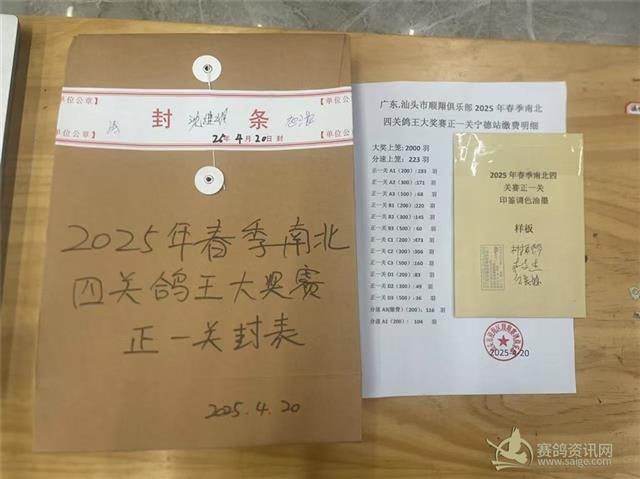 单位公章】
封
条
【单位公章】
【单位公章】
【单位公章】
25年4月20日 封
2025年春季南北
四关鸽王大奖赛
正一关封表
2025.4.20
广东.汕头市顺翔俱乐部2025年春季南北
四关鸽王大奖赛正一关宁德站缴费明细
大奖上笼:2000 羽
分速上笼:223 羽
正一关 A1(200):283 羽
正一关 A2(300):171 羽
正一关 A3(500):68 羽
正一关 B1(200):220 羽
正一关 B2(300):145 羽
正一关 B3(500):60 羽
正一关 C1(200):473 羽
正一关 C2(300):306 羽
正一关 C3(500):160 羽
正一关 D1(200):83 羽
正一关 D2(300):49 羽
正一关 D3(500):36 羽
分速 A0(缴费)(200):116 羽
分速 A1(200): 104 羽
2025-4-20
2025 年春季南北四
关赛正一关
印鉴调色油墨
样板
赛鸽资讯网
www.saige.com